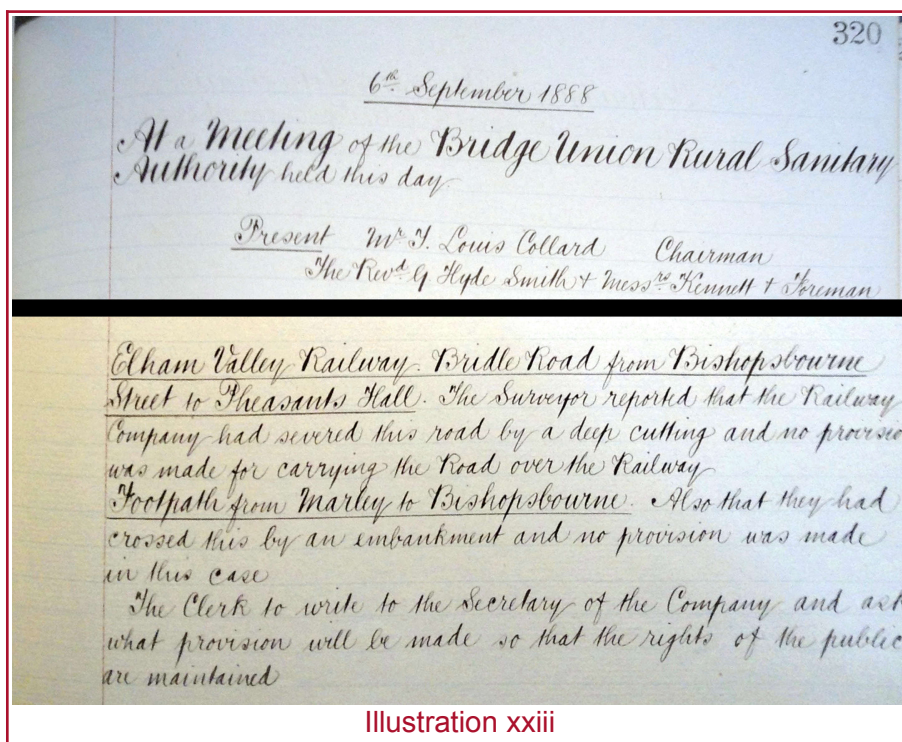 320
6th September 1888
At a Meeting of the Bridge Union Rural Sanitary
Authority held this day.
Present Mr T. Louis Collard Chairman
The Revd G Hyde Smith + Messrs Kennett + Foreman
Elham Valley Railway. Bridle Road from Bishopsbourne
Street to Pheasants Hall. The Surveyor reported that the Railway
Company had severed this road by a deep cutting and no provisio
was made for carrying the Road over the Railway
Footpath from Marley to Bishopsbourne. Also that they had
crossed this by an embankment and no provision was made
in this case
The Clerk to write to the Secretary of the Company and ask
what provision will be made so that the rights of the public
are maintained
Illustration xxiii